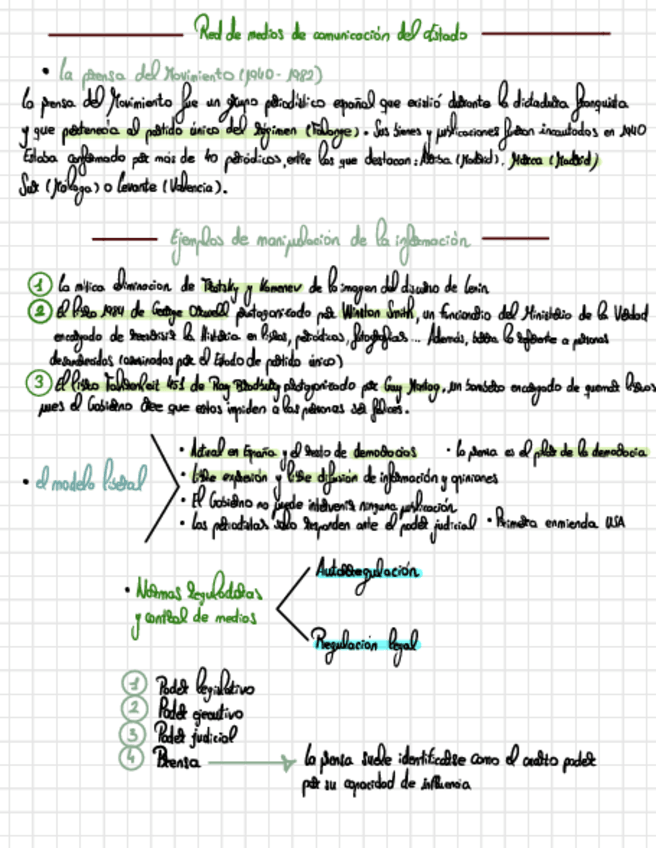 Red de medios de comunicación del Estado
• La prensa del Movimiento (1940-1982)
La prensa del Movimiento fue un grupo periodístico español que existió durante la dictadura franquista
y que pertenecía al partido único del régimen (Falange). Sus bienes y publicaciones fueron incautados en 1940
Estaba conformado por más de 40 periódicos, entre los que destacan: (Madrid), Marca (Madrid)
Sur (Málaga) o Levante (Valencia).
Ejemplos de manipulación de la información
1 La mítica eliminacion de Trotsky y Kamenev de la imagen del discurso de Lenin
2 El libro 1984 de George Orwell protagonizado por Winston Smith, un funcionario del Ministerio de la Verdad
encargado de reescribir la Historia en libros, periódicos, fotografías... Además, borra lo referente a personas
desaparecidas (asesinadas por el Estado de partido único)
3 El libro Fahrenheit 451 de Ray Bradbury protagonizado por Guy Montag, un bombero encargado de quemar libros
pues el Gobierno cree que estos impiden a las personas ser felices.
• el modelo liberal
• Actual en España y el resto de democracias • la prensa es el pilar de la democracia
• Libre expresión y libre difusión de información y opiniones
• El Gobierno no puede intervenir ninguna publicación
• Los periodistas solo responden ante el poder judicial • Primera enmienda USA
• Normas reguladoras
y control de medios
Autorregulación
Regulación legal
1 Poder legislativo
2 Poder ejecutivo
3 Poder judicial
4 Prensa → la prensa suele identificarse como el cuarto poder
por su capacidad de influencia